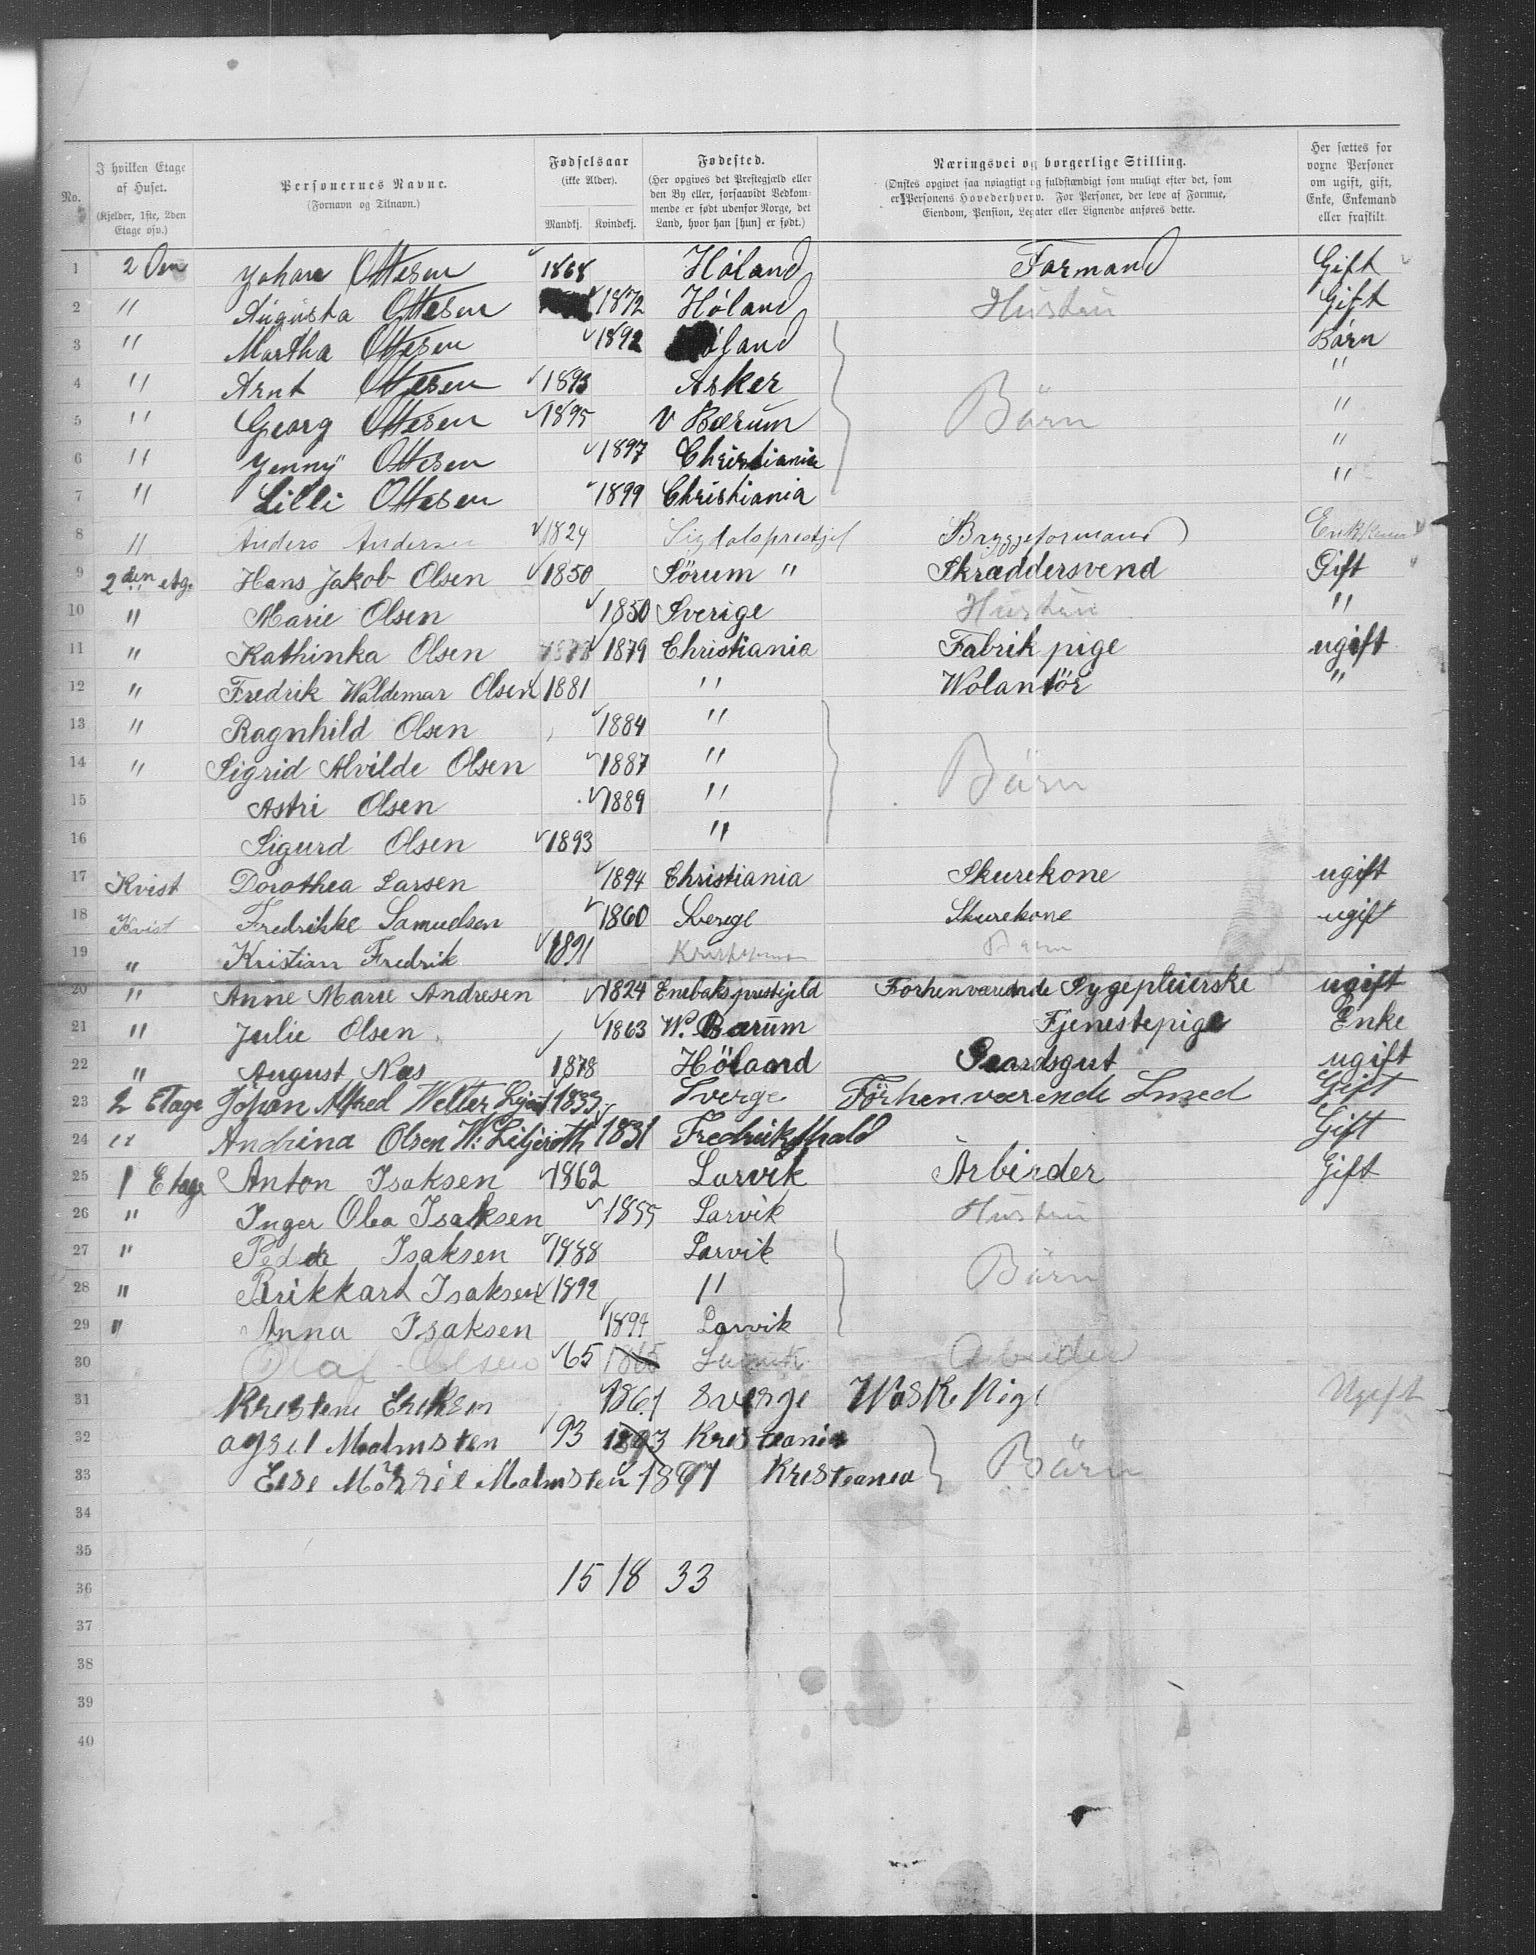 No. | I hvilken Etage af Huset. (Kjelder, 1ste, 2den Etage osv.) | Personernes Navne. (Fornavn og Tilnavn.) | Fødselsaar (ikke Alder). Mandkj. Kvindekj. | Fødested. (Her opgives det Præstegjæld eller den By eller, forsaavidt Vedkommende er født udenfor Norge, det Land, hvor han [hun] er født.) | Næringsvei og borgerlige Stilling. (Ønskes opgivet saa nøiagtigt og fuldstændigt som muligt efter det, som er Personens Hovederhverv. For Personer, der leve af Formue, Eiendom, Pension, Legater eller Lignende anføres dette.) | Her sættes for voxne Personer om ugift, gift, Enke, Enkemand eller fraskilt.
1 2 Den Johan Ottesen 1868 Høland Formand Gift
2 " Augusta Ottesen 1872 Høland Hustru Gift
3 " Martha Ottesen 1892 Høland Børn
4 " Arnt Ottesen 1893 Asker "
5 " Georg Ottesen 1895 V Bærum Børn "
6 " Jenny Ottesen 1897 Christiania "
7 " Lilli Ottesen 1899 Christiania "
8 " Anders Andersen 1824 Sigdalsprestgj Bryggeformand
9 2den etg. Hans Jakob Olsen 1850 Sörum " Skræddersvend Gift
10 " Marie Olsen 1850 Sverige Hustru "
11 " Kathinka Olsen 1878 1879 Christiania Fabrik pige ugift
12 " Fredrik Waldemar Olsen 1881 " Wolantör "
13 " Ragnhild Olsen 1884 "
14 " Sigrid Alvilde Olsen 1887 " Börn
15 Astri Olsen 1889 "
16 Sigurd Olsen 1893 "
17 Kvist Dorothea Larsen 1894 Christiania Skurekone ugift
18 Kvist Fredrikke Samuelsen 1860 Sverige Skurekone ugift
19 " Kristian Fredrik 1891 Barn
20 " Anne Marie Andresen 1824 Enebaksprestejeld Forhenværende Sygepleierske ugift
21 " Julie Olsen 1863 W. Bærum Tjenestepige Enke
22 " August Næs 1878 Höland Gaardsgut ugift
23 2 Etage Johan Alfred Welter 1833 Sverge Förhenværende Smed Gift
24 " Andrina Olsen W. Liljeroth 1831 Fredrikshald Gift
25 1 Etage Anton Isaksen 1862 Larvik Arbirder Gift
26 " Inger Olea Isaksen 1855 Larvik Hustru
27 " Peder Isaksen 1888 Larvik
28 " Rikkart Isaksen 1892 " Börn
29 " Anna Isaksen 1894 Larvik
30 Olaf Olsen 65 1865 Larvik Arbeider
31 Kristene Eriksen 1861 Sverge Waskepige Ugift
32 Malmsten 93 1893 Kristiania
33 Malmsten 1897 Kristiania Börn
34
35
36 15 18 33
37
38
39
40